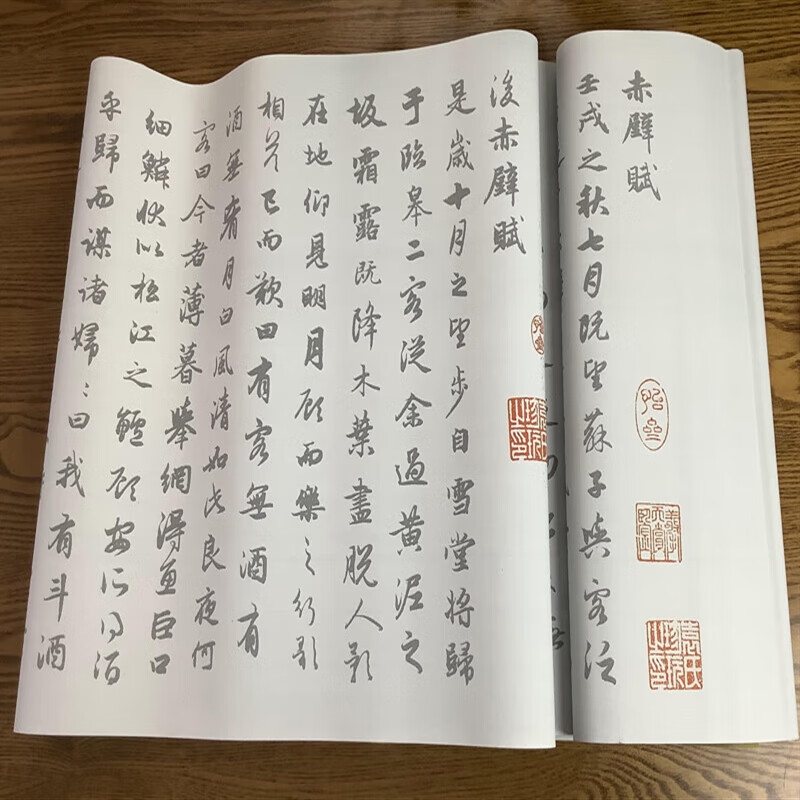 赤壁賦
壬戌之秋七月既望蘇子與客泛
後赤壁賦
是歲十月之望步自雪堂將歸
于臨皋二客從余過黃泥之
坂霜露既降木葉盡脫人影
在地仰見明月顧而樂之行歌
相答已而歎曰有客無酒有
酒無肴月白風清如此良夜何
客曰今者薄暮舉網得魚巨口
細鱗狀似松江之鱸顧安所得酒
乎歸而謀諸婦〻曰我有斗酒